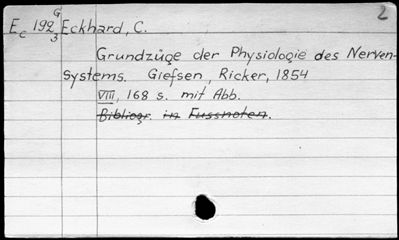 2
Ec 192 G3 Eckhard, C.
Grundzüge der Physiologie des Nerven-
systems. Giefsen, Ricker, 1854
VIII, 168 s. mit Abb.
Bibliogr. in Fussnoten.